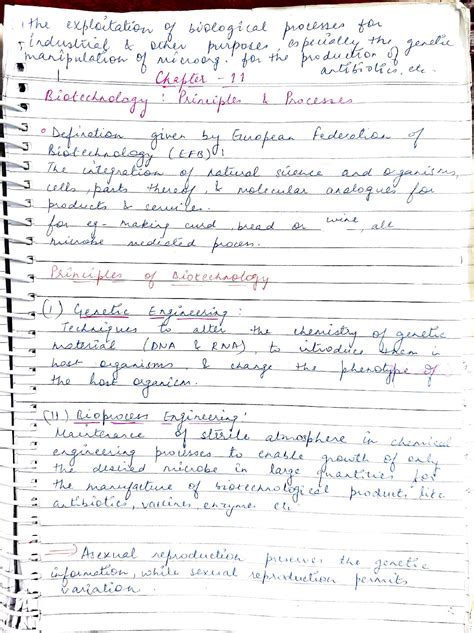 the exploitation of biological processes for
industrial & other purposes, especially the genetic
manipulation of microorg. for the production of
antibiotics, etc.
Chapter - 11
Biotechnology : Principles & Processes
Defination given by European Federation of
Biotechnology (EFB) :
The integration of natural science and organisms,
cells, parts thereof, & molecular analogues for
products & services.
for eg - making curd, bread or wine, all
microbe mediated process.
Principles of Biotechnology
(I) Genetic Engineering :
Techniques to alter the chemistry of genetic
material (DNA & RNA) to introduce them in
host organisms, & change the phenotype of
the host organism.
(II) Bioprocess Engineering :
Maintenance of sterile atmosphere in chemical
engineering processes to enable growth of only
the desired microbe in large quantities for
the manufacture of biotechnological product like
antibiotics, vaccines, enzymes etc.
→ Asexual reproduction preserves the genetic
information, while sexual reproduction permits
variation.